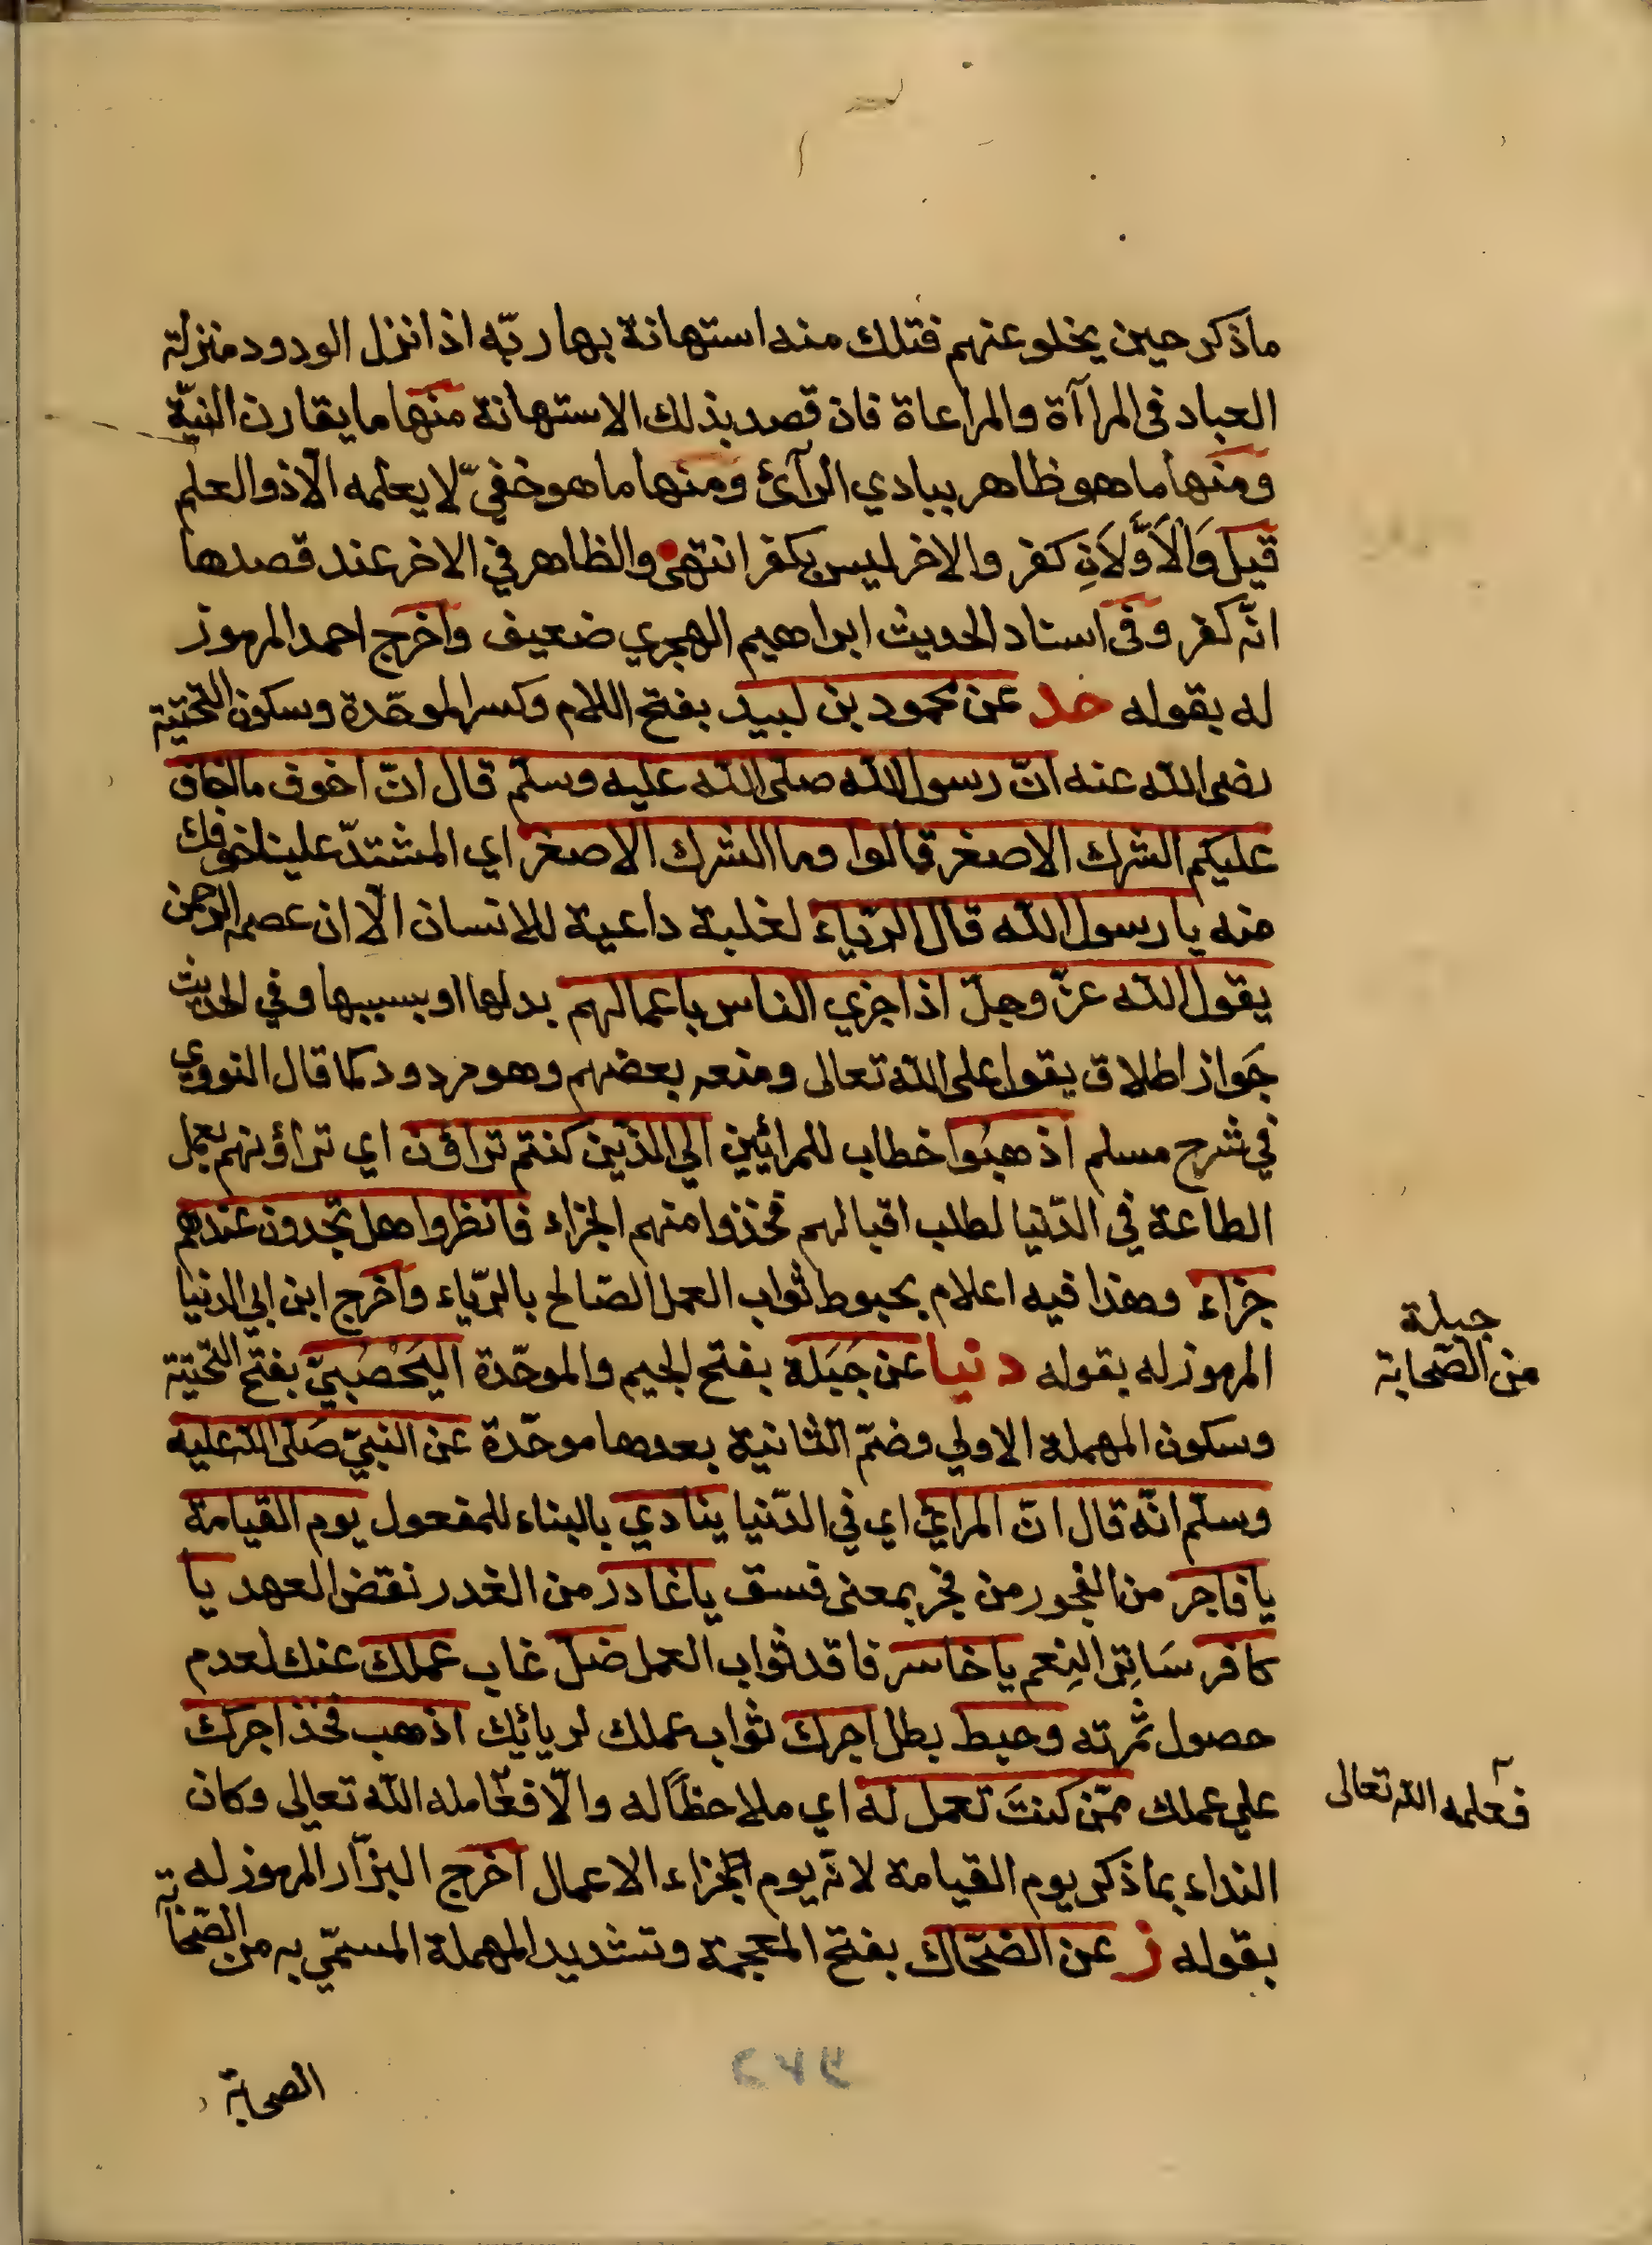 ماذكر حين يخلو عنهم فتلك منه استهانة بها ربّه اذ انزل الودود منزلة
العباد في المرآآة والمراعاة فان قصد بذلك الاستهانة منها ما يقارن النيّة
ومنها ما هو ظاهر ببادي الرآئ ومنها ما هو خفيّ لا يعلمه الّا ذوالعلم
قيل وَالاَوَّلاَنِ كفر والاخر ليس بكفر انتهى والظاهر في الاخر عند قصدها
انّه كفر وفى اسناد الحديث ابراهيم الهجري ضعيف واخرج احمد المرموز
له بقوله حد عن محمود بن لبيد بفتح اللام وكسر الموحّدة وسكون التحتية
رضى الله عنه انّ رسول الله صلى الله عليه وسلّم قال انّ اخوف ما اخاف
عليكم الشرك الاصغر قالوا وما الشرك الاصغر اي المشتدّ علينا خوفك
منه يا رسول الله قال الرّياء لغلبة داعية للانسان الّا ان عصمه الرحمن
يقول الله عزّ وجلّ اذا جزي الناس باعمالهم بدلها او بسببها وفي الحديث
جَواز اطلاق يقول على الله تعالى ومنعه بعضهم وهو مردود كما قال النووي
في شرح مسلم اذهبُوا خطاب للمرائيين الي الذين كنتم تراؤن اي تراؤنهم بعمل
الطاعة في الدّنيا لطلب اقبالهم فخذوا منهم الجزاء فانظروا هل تجدون عندهم
جزاء وهذا فيه اعلام بحبوط ثواب العمل الصّالح بالرّياء واخرج ابن ابي الدنيا
المرموز له بقوله دنيا عن جَبَلة بفتح الجيم والموحّدة اليَحْصُبيّ بفتح التّحتية
وسكون المهملة الاولي وضمّ الثانية بعدها موحّدة عن النبيّ صَلى الله عليه
وسلّم انّه قال انّ المرائي اي في الدّنيا ينادي بالبناء للمفعول يوم القيامة
يا فاجر من الفجور من فجر بمعنى فسق يا غادر من الغدر نقض العهد يا
كافر سَاتِر النِعم يا خاسر فاقد ثواب العمل ضلّ غاب عملك عنك لعدم
حصول ثمرته وحبط بطل اجرك ثواب عملك لريائك اذهب فخذ اجرك
علي عملك ممّن كنتَ تعمل له اي ملاحظًا له والّا فعّامله الله تعالي وكان
النداء بما ذكر يوم القيامة لانّه يوم الجزاء الاعمال اخرج البزّار المرموز له
بقوله ز عن الضحّاك بفتح المعجمة وتشديد المهملة المسمّي به من الصّحابة
جبلة
من الصّحابة
فعلمه الله تعالى
الصحابة